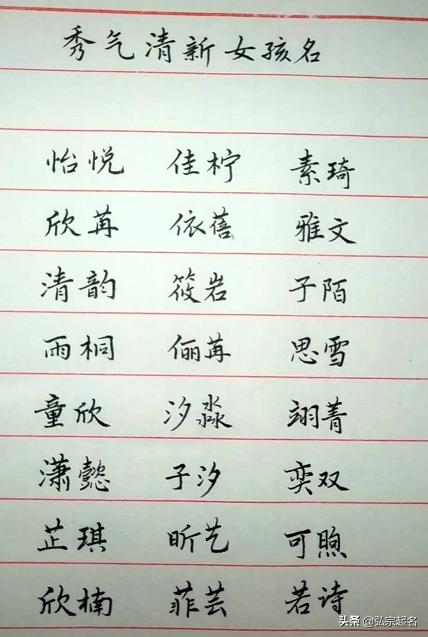 秀气清新女孩名
怡悦 佳柠 素琦
欣苒 依蓓 雅文
清韵 筱岩 子陌
雨桐 俪苒 思雪
童欣 汐淼 翊菁
潇懿 子汐 奕双
芷琪 昕艺 可煦
欣楠 菲芸 若诗
头条 @弘宗起名